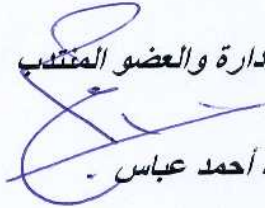 دارة والعضو المنتدب
أحمد عباس .